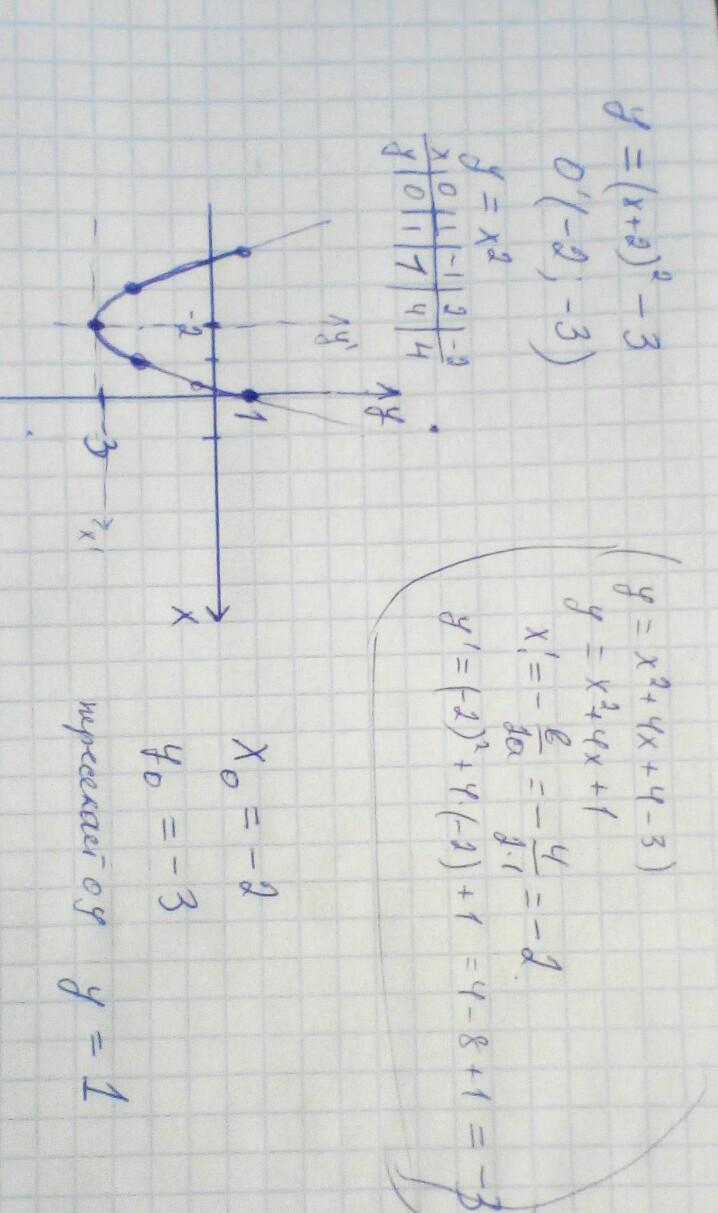 y = (x+2)² - 3
0'(-2; -3)
y = x²
x | 0 | 1 | -1 | 2 | -2
y | 0 | 1 | 1 | 4 | 4
y
y'
1
-2
-3
x'
x
(y = x² + 4x + 4 - 3)
y = x² + 4x + 1
x' = - в/2a = - 4/2·1 = -2
y' = (-2)² + 4·(-2) + 1 = 4 - 8 + 1 = -3
x₀ = -2
y₀ = -3
пересекает oy y = 1